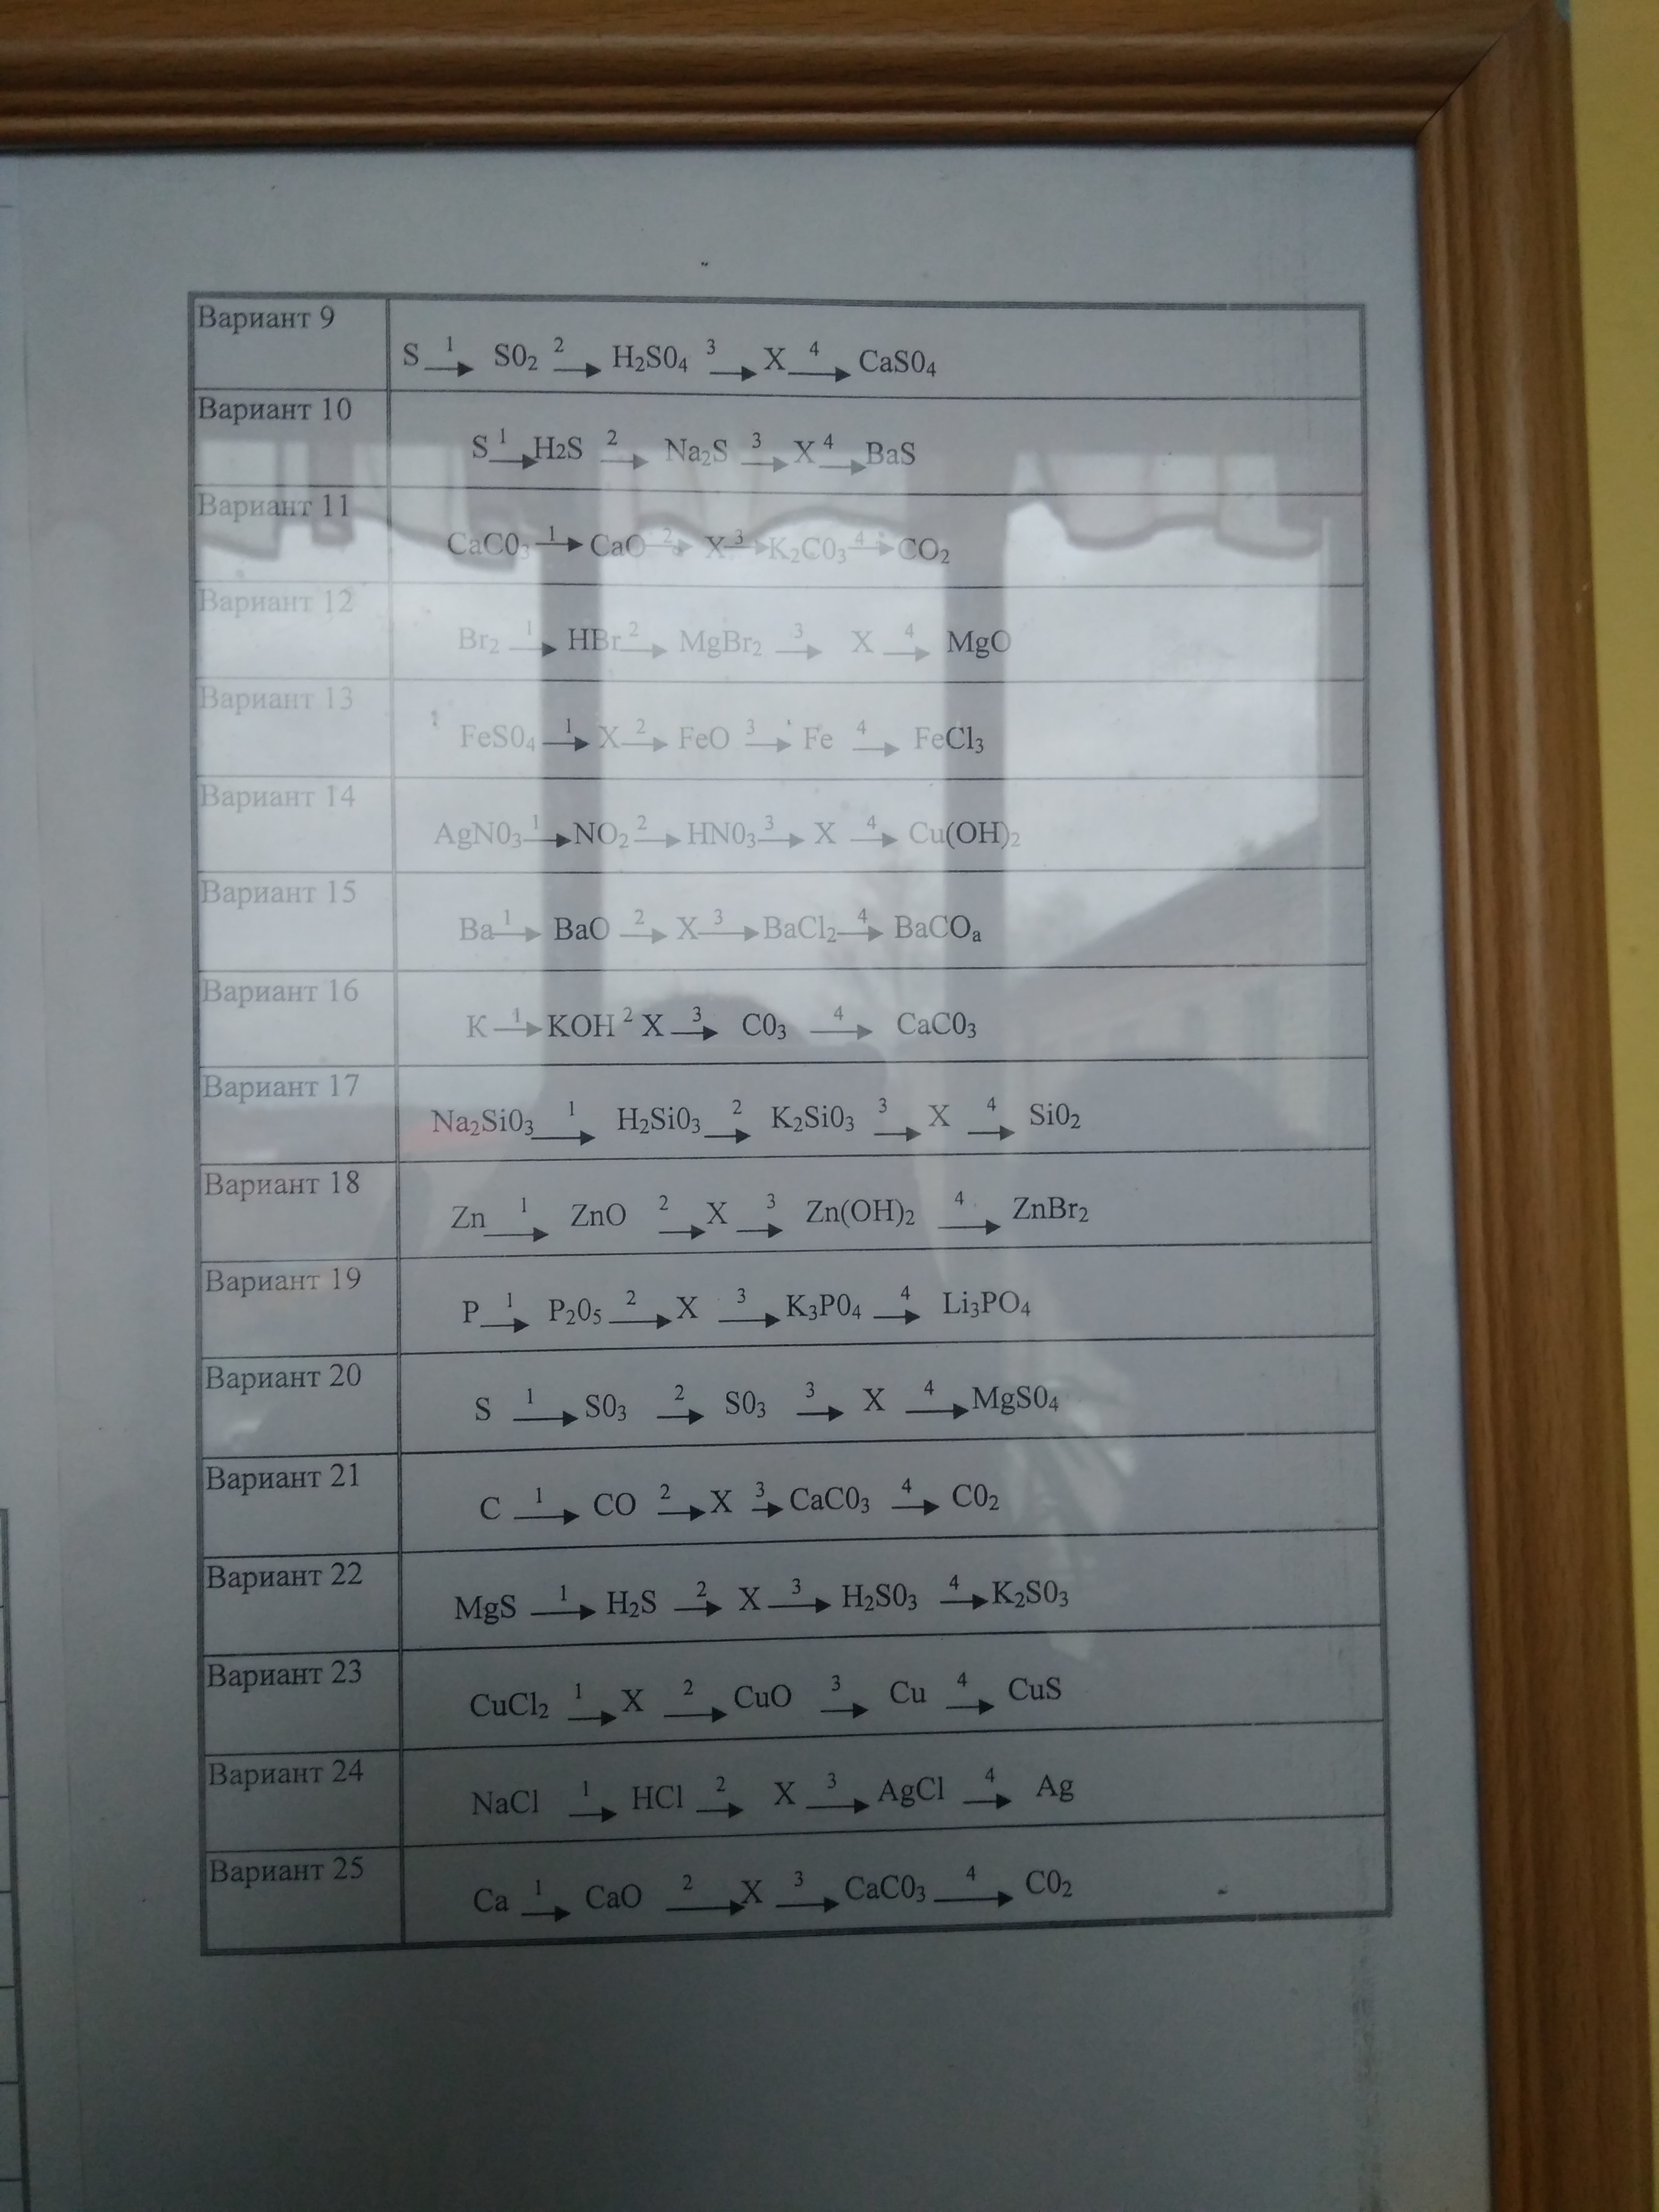 Вариант 9
S 1→ SO2 2→ H2SO4 3→ X 4→ CaSO4
Вариант 10
S 1→ H2S 2→ Na2S 3→ X 4→ BaS
Вариант 11
CaCO3 1→ CaO 2→ X 3→ K2CO3 4→ CO2
Вариант 12
Br2 1→ HBr 2→ MgBr2 3→ X 4→ MgO
Вариант 13
FeSO4 1→ X 2→ FeO 3→ Fe 4→ FeCl3
Вариант 14
AgNO3 1→ NO2 2→ HNO3 3→ X 4→ Cu(OH)2
Вариант 15
Ba 1→ BaO 2→ X 3→ BaCl2 4→ BaCOa
Вариант 16
K 1→ KOH 2 X 3→ CO3 4→ CaCO3
Вариант 17
Na2SiO3 1→ H2SiO3 2→ K2SiO3 3→ X 4→ SiO2
Вариант 18
Zn 1→ ZnO 2→ X 3→ Zn(OH)2 4→ ZnBr2
Вариант 19
P 1→ P2O5 2→ X 3→ K3PO4 4→ Li3PO4
Вариант 20
S 1→ SO3 2→ SO3 3→ X 4→ MgSO4
Вариант 21
C 1→ CO 2→ X 3→ CaCO3 4→ CO2
Вариант 22
MgS 1→ H2S 2→ X 3→ H2SO3 4→ K2SO3
Вариант 23
CuCl2 1→ X 2→ CuO 3→ Cu 4→ CuS
Вариант 24
NaCl 1→ HCl 2→ X 3→ AgCl 4→ Ag
Вариант 25
Ca 1→ CaO 2→ X 3→ CaCO3 4→ CO2